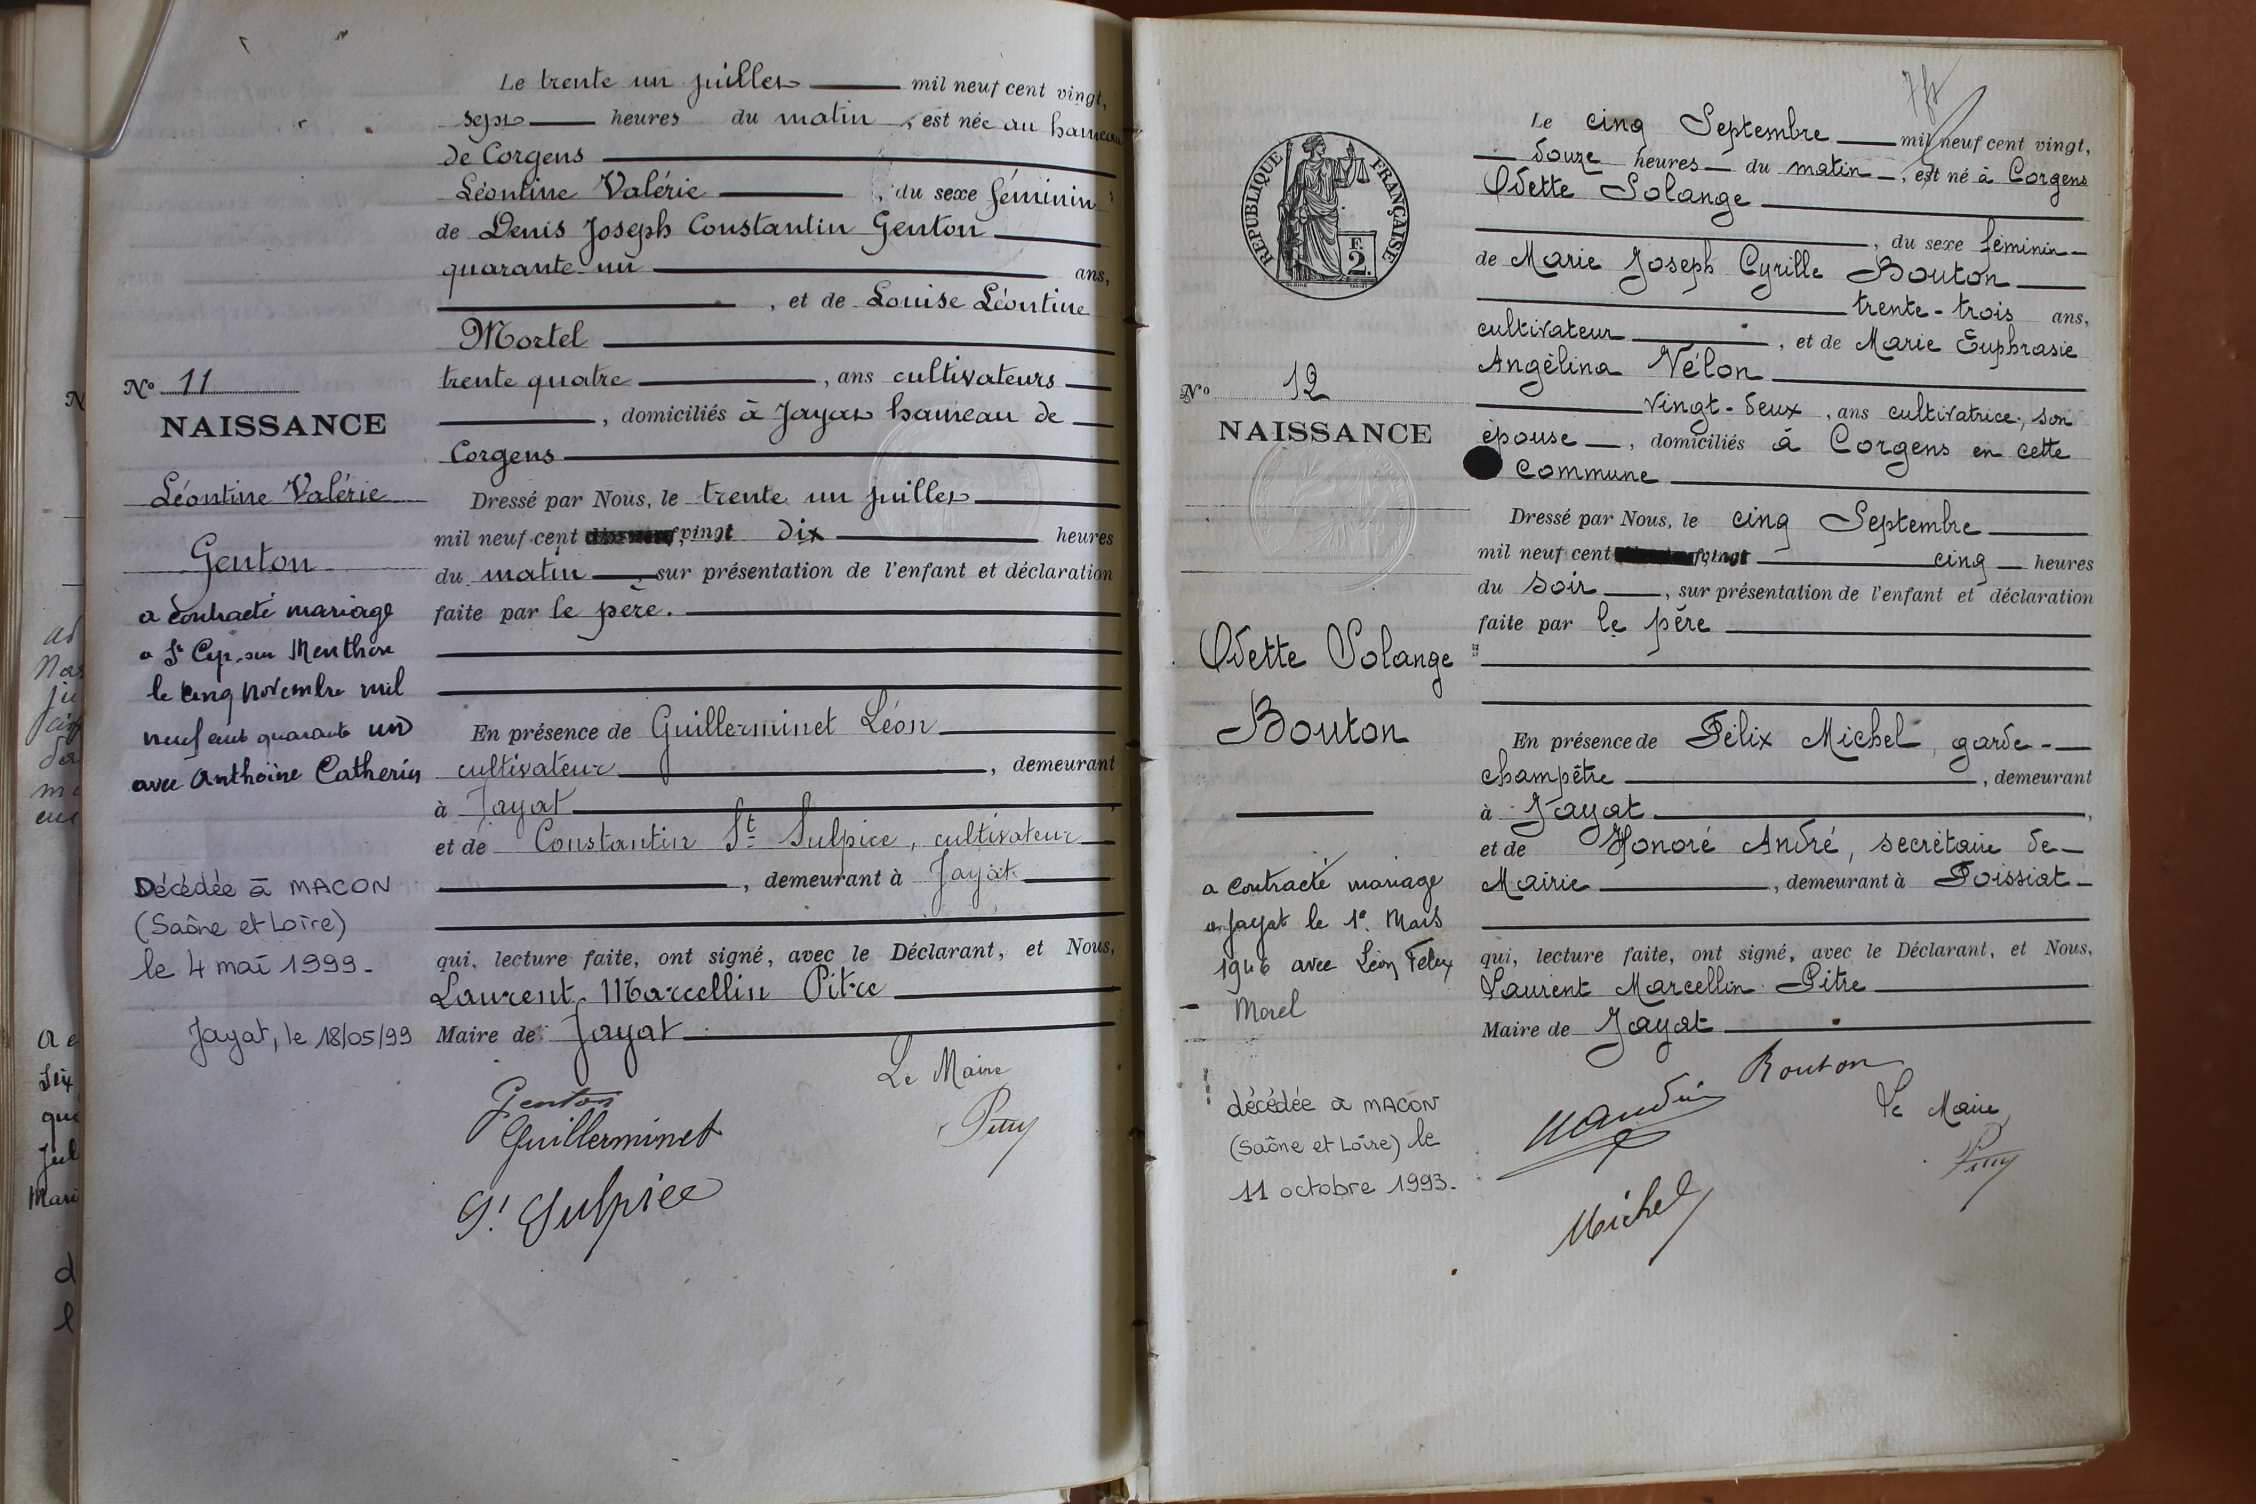 Le trente un juillet mil neuf cent vingt,
sept heures du matin, est née au hameau
de Corgens
Léontine Valérie, du sexe féminin
de Denis Joseph Constantin Genton
quarante un ans,
, et de Louise Léontine
Mortel
trente quatre, ans cultivateurs
, domiciliés à Jayat hameau de
Corgens
Dressé par Nous, le trente un juillet
mil neuf cent vingt dix heures
du matin, sur présentation de l'enfant et déclaration
faite par le père.
En présence de Guillerminet Léon
cultivateur, demeurant
à Jayat
et de Constantin St Sulpice, cultivateur
, demeurant à Jayat
qui, lecture faite, ont signé, avec le Déclarant, et Nous,
Laurent Marcellin Pitre
Maire de Jayat
Genton
Guillerminet
St Sulpice
Le Maire
N° 11
NAISSANCE
Léontine Valérie
Genton
a contracté mariage
a St Cyr sur Menthon
le cinq novembre mil
neuf cent quarante un
avec Anthoine Catherin
Décédée à MACON
(Saône et Loire)
le 4 mai 1999.
Jayat, le 18/05/99
RÉPUBLIQUE FRANÇAISE
F.
2.
N° 12
NAISSANCE
Odette Solange
Bouton
a contracté mariage
a Jayat le 1er Mars
1946 avec Léon Felix
Morel
décédée à MACON
(Saône et Loire) le
11 octobre 1993.
Le cinq Septembre mil neuf cent vingt,
douze heures du matin, est né à Corgens
Odette Solange
, du sexe féminin
de Marie Joseph Cyrille Bouton
trente-trois ans,
cultivateur, et de Marie Euphrasie
Angélina Vélon
vingt-deux, ans cultivatrice, son
épouse, domiciliés à Corgens en cette
commune
Dressé par Nous, le cinq Septembre
mil neuf cent vingt cinq heures
du soir, sur présentation de l'enfant et déclaration
faite par le père
En présence de Félix Michel, garde-
champêtre, demeurant
à Jayat,
et de Honoré André, secrétaire de
Mairie, demeurant à Foissiat
qui, lecture faite, ont signé, avec le Déclarant, et Nous,
Laurent Marcellin Pitre
Maire de Jayat
Bouton
Le Maire
Michel